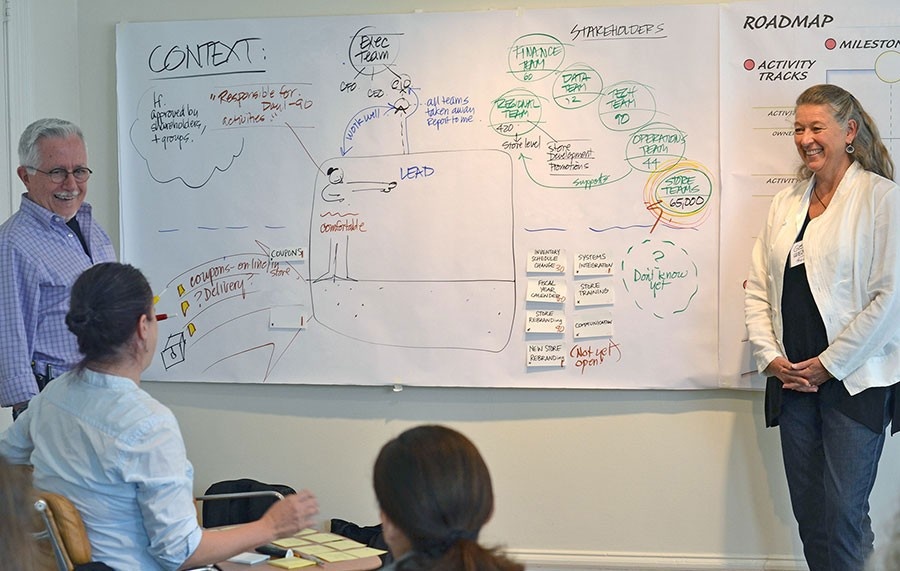 CONTEXT:
If
approved by
shareholders,
+ groups.
"Responsible for
Day 1-90
activities"
Exec
Team
CFO
CEO
CIO
work well
all teams
taken away
Report to me.
LEAD
comfortable
STAKEHOLDERS
FINANCE
TEAM
60
DATA
TEAM
12
TECH
TEAM
90
REGIONAL
TEAM
420
OPERATIONS
TEAM
44
STORE
TEAMS
65,000
store level
Store
Development
Promotions
supports
?
Don't know
yet
coupons-online
? Delivery?
COUPONS
in
store
INVENTORY
SCHEDULE
CHANGE
SYSTEMS
INTEGRATION
FISCAL
YEAR
CALENDAR
STORE
TRAINING
STORE
REBRANDING
COMMUNICATION
NEW STORE
REBRANDING
(Not yet
open)
ROADMAP
MILESTON
ACTIVITY
TRACKS
ACTIVITI
OWNE
ACTIVITI